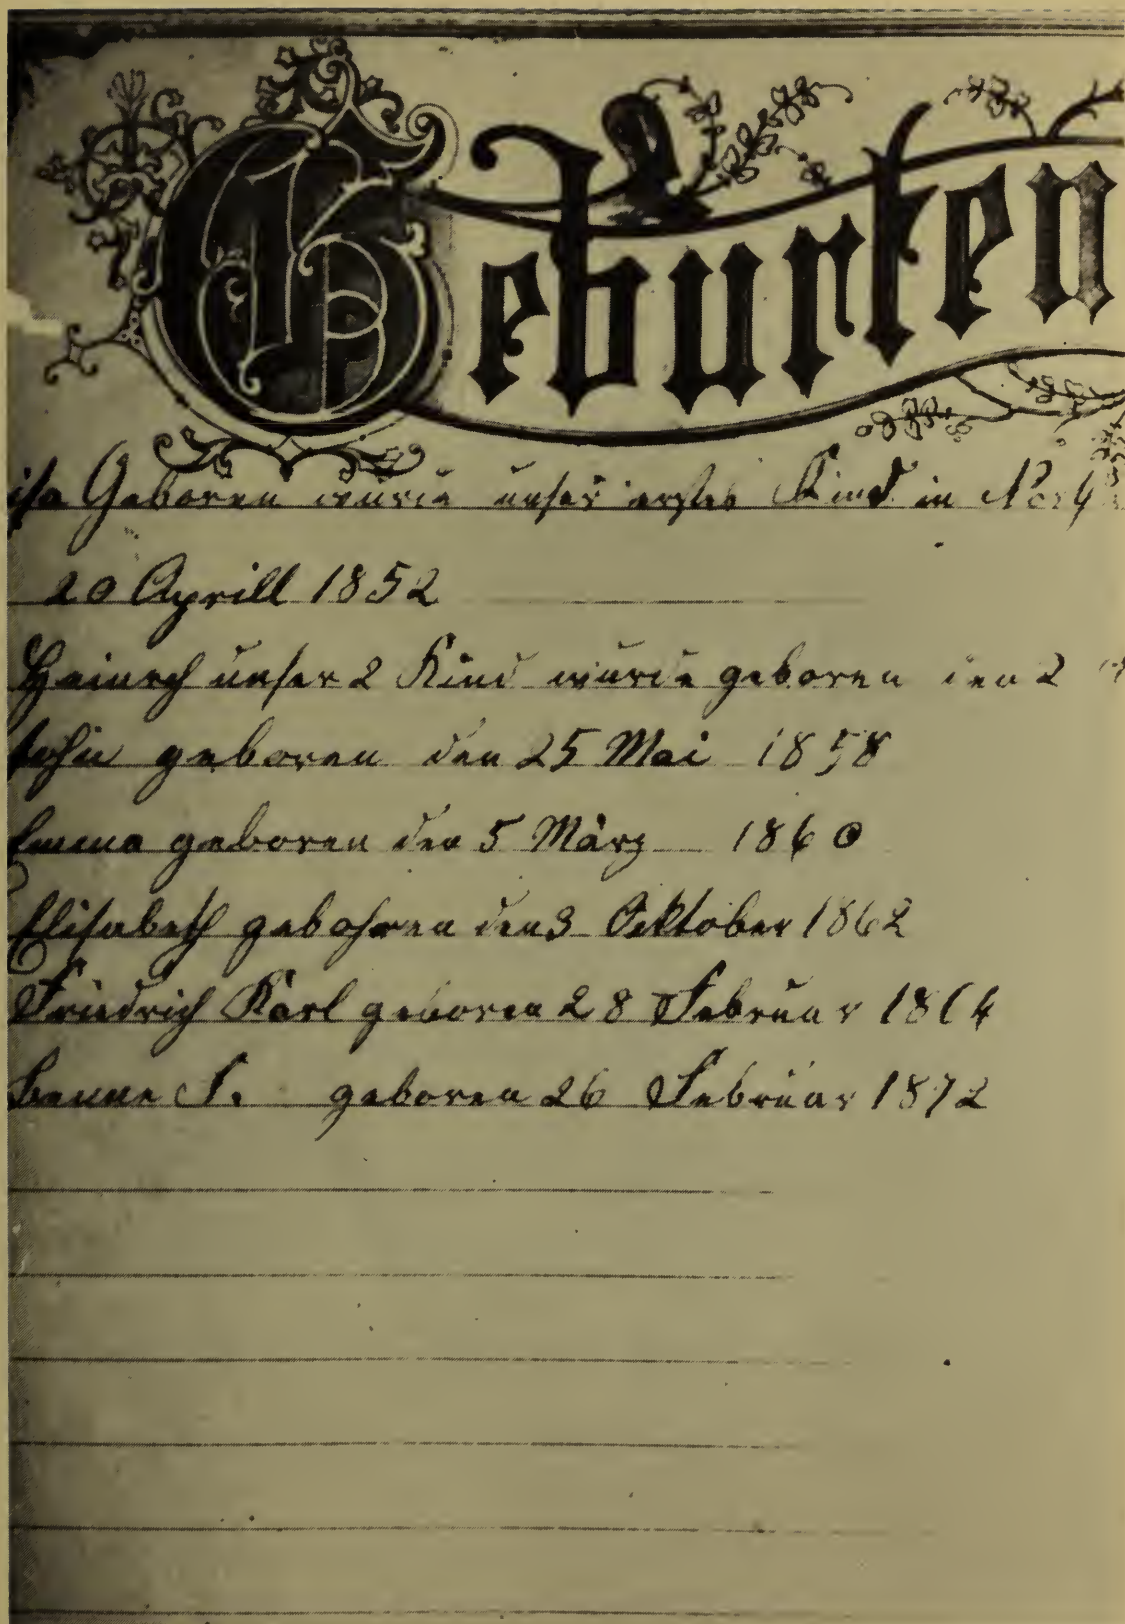 Geburten
Geboren wurde unser erstes Kind in
20 Aprill 1852
Heinrch unser 2 Kind wurde geboren den 2
geboren den 25 Mai 1858
Emma geboren den 5 März 1860
Elisabeth gebohren den 3 Oktober 1862
Friedrich Karl geboren 28 Februar 1864
geboren 26 Februar 1872